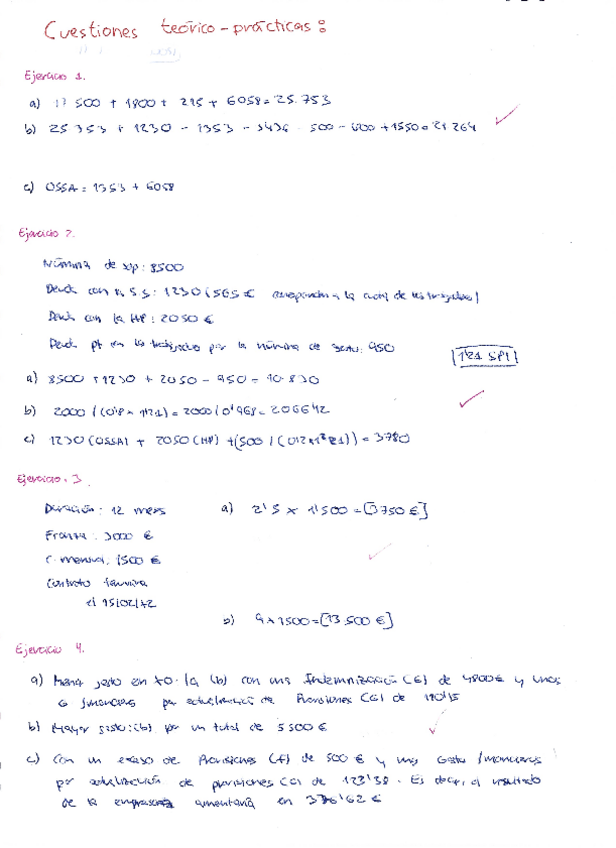 Cuestiones teórico-prácticas:
Ejercicio 1.
a) 17 500 + 1800 + 215 + 6058 = 25.753
b) 25 353 + 1230 - 1353 - 3436 - 500 - 600 + 1550 = 21 264
c) OSSA = 1353 + 6058
Ejercicio 2.
Nómina de sep: 8500
Deuda con la S.S: 1230 (565 € corresponden a la cuota de los trabajadores)
Deuda con la HP: 2050 €
Deuda pt con los trabajadores por la nómina de: 950
1'21 SPI
a) 8500 + 1230 + 2050 - 950 = 10 830
b) 2000 / (0'8 × 1'21) = 2000 / 0'968 = 2066'42
c) 1230 (OSSA) + 2050 (HP) + (500 / (0'2 × 1'21)) = 3780
Ejercicio. 3.
Duración: 12 meses
a) 2'5 × 1'500 = [3750 €]
Fianza: 3000 €
C. mensual: 1500 €
Contrato termina
el 15/02/x2
b) 9 × 1500 = [13 500 €]
Ejercicio 4.
a) Menor gasto en x0. la (b) con una Indemnización (G) de 4800 € y unos
G financieros por actualización de Provisiones (G) de
b) Mayor gasto: (b) por un total de 5 500 €
c) Con un exceso de Provisiones (I) de 500 € y unos Gastos financieros
por actualización de provisiones (G) de 123'38. Es decir, el resultado
de la empresa aumentaría en 376'62 €